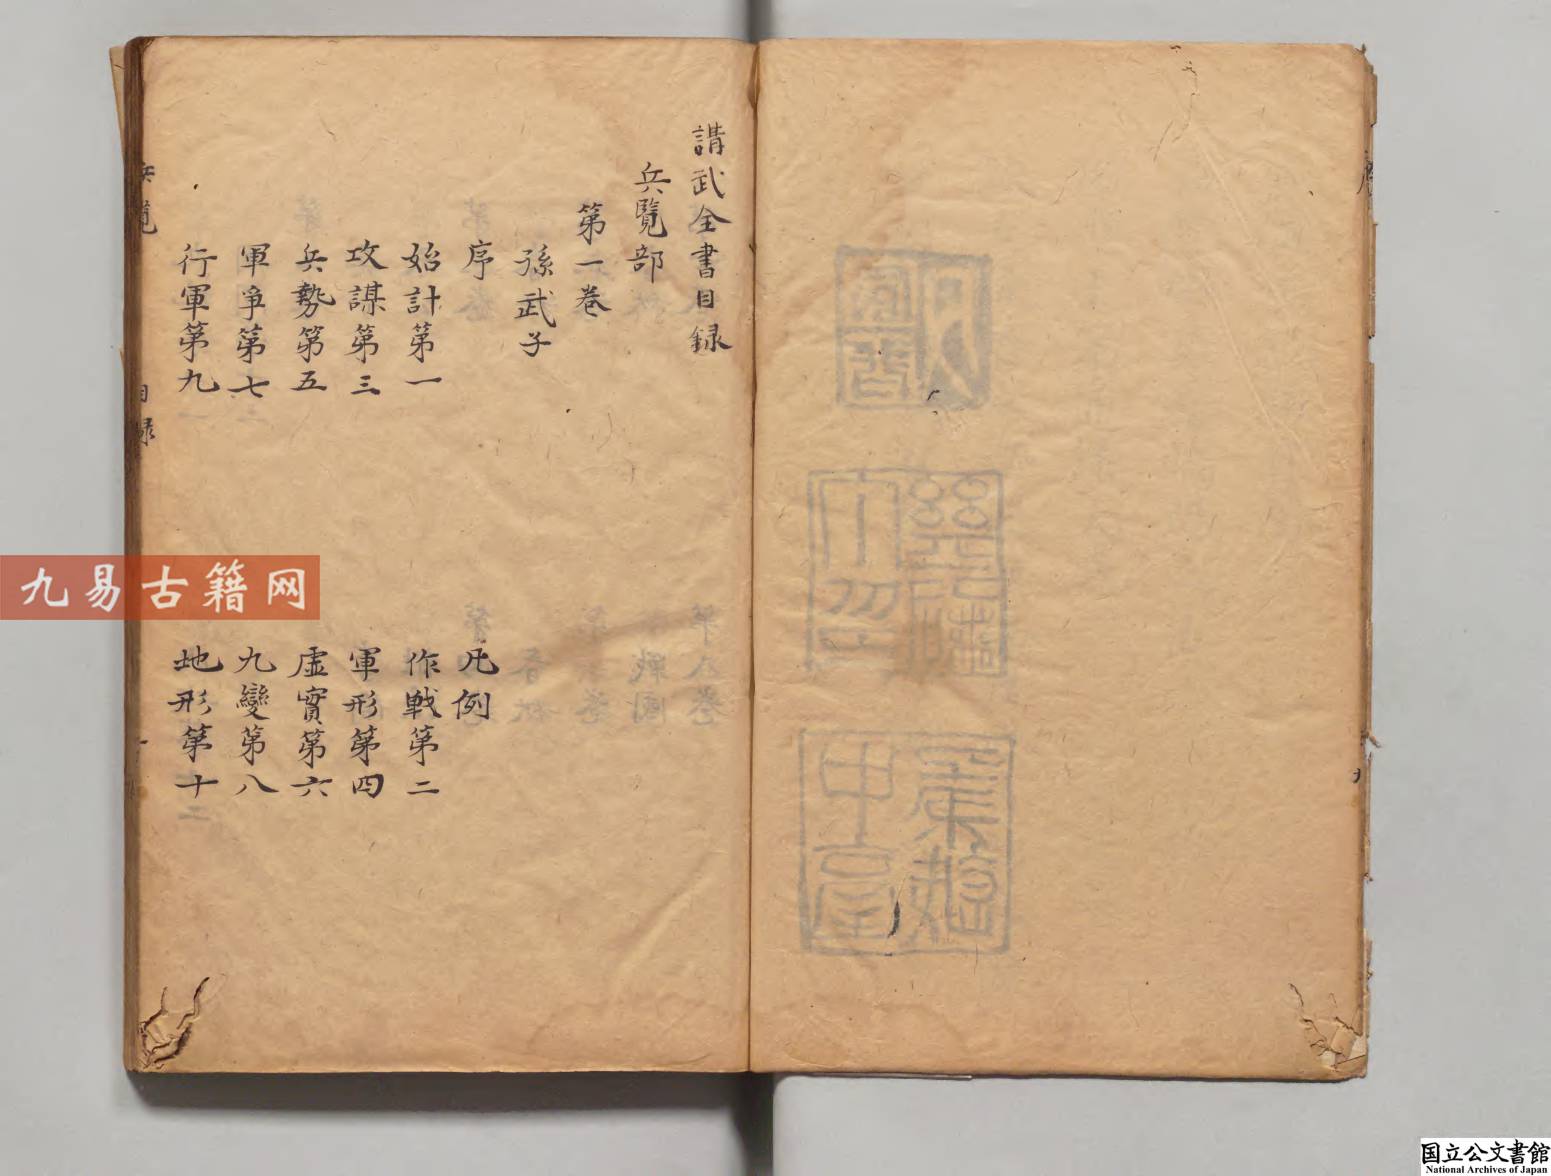 講武全書目録
兵覽部
第一巻
孫武子
序
凡例
始計第一
作戦第二
攻謀第三
軍形第四
兵勢第五
虚實第六
軍爭第七
九變第八
行軍第九
地形第十
兵覽
目録
一
九易古籍网
国立公文書館
National Archives of Japan